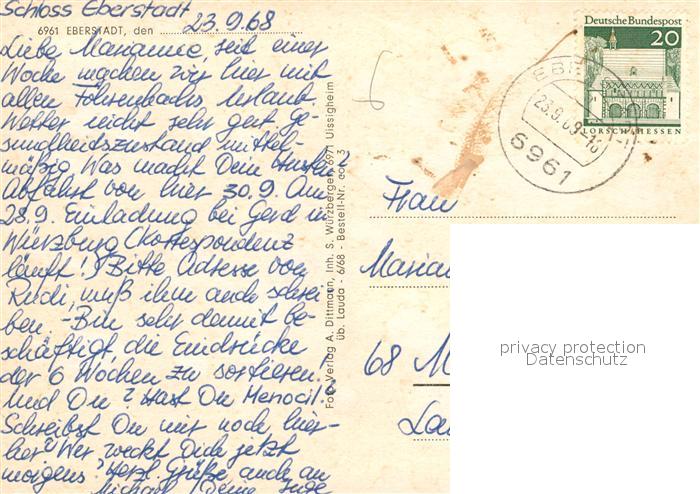 Schloss Eberstadt
6961 EBERSTADT, den 23.9.68
Liebe Marianne, seit einer
Woche machen wir hier mit
allen Föhrenbachs Urlaub.
Wetter nicht sehr gut Ge-
sundheitszustand mittel-
mäßig Was macht Dein Husten?
Abfahrt von hier 30.9. Am
28.9. Einladung bei Gerd in
Würzburg (Korrespondenz
läuft!) Bitte Adresse von
Rudi, muß ihm auch schrei
ben. - Bin sehr damit be-
schäftigt, die Eindrücke
der 6 Wochen zu sortieren!
Und Du? Hast Du Menocil?
Schreibst Du mir noch hier-
her? Wer weckt Dich jetzt
morgens? Herzl. Grüße auch an
Michael Deine Inge
Foto-Verlag A. Dittmann, Inh. S. Würzberger, 6971 Uissigheim
üb. Lauda - 6/68 - Bestell-Nr.
6
Deutsche Bundespost
20
LORSCH/HESSEN
23.9.68
6961
Frau
Marian
68 M
La
privacy protection
Datenschutz